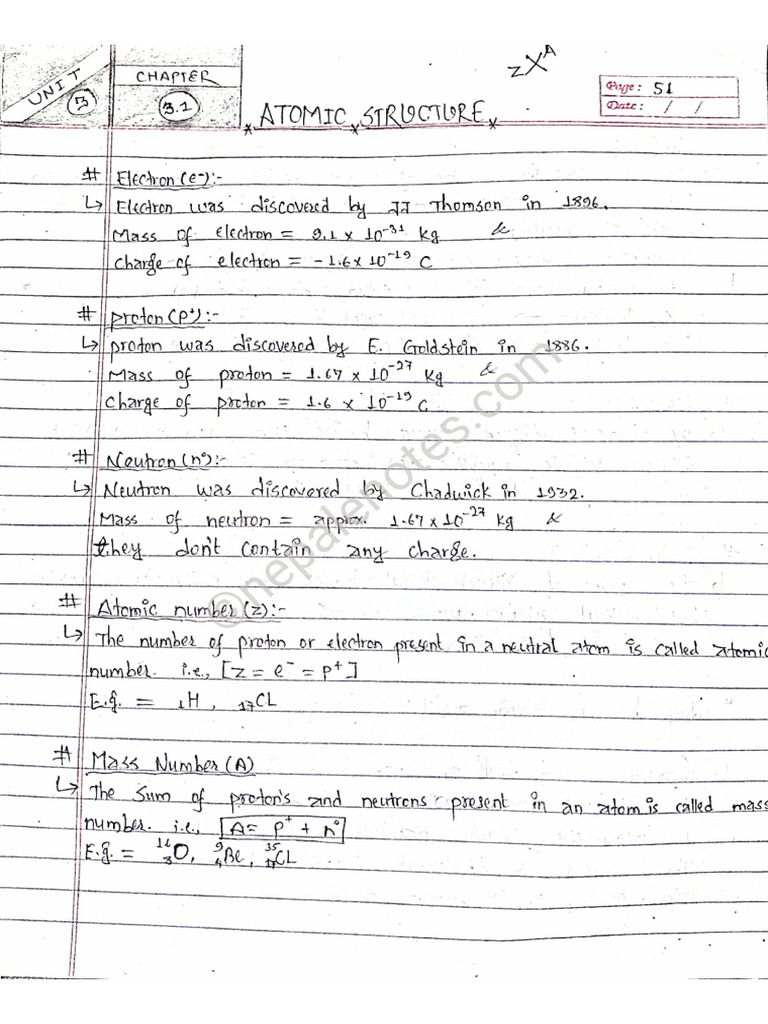 UNIT 3
CHAPTER 3.1
zXᴬ
Page: 51
Date: / /
ATOMIC STRUCTURE
# Electron (e⁻):-
↳ Electron was discovered by JJ Thomson in 1896.
Mass of electron = 9.1 × 10⁻³¹ kg &
Charge of electron = -1.6 × 10⁻¹⁹ C
# proton (p⁺):-
↳ proton was discovered by E. Goldstein in 1886.
Mass of proton = 1.67 × 10⁻²⁷ kg &
Charge of proton = 1.6 × 10⁻¹⁹ C
# Neutron (n⁰):-
↳ Neutron was discovered by Chadwick in 1932.
Mass of neutron = approx. 1.67 × 10⁻²⁷ kg &
they don't contain any charge.
# Atomic number (z):-
↳ The number of proton or electron present in a neutral atom is called atomic
number. i.e., [z = e⁻ = p⁺]
E.g. = ₁H, ₁₇CL
# Mass Number (A)
↳ The Sum of proton's and neutrons present in an atom is called mass
number. i.e., A = p⁺ + n⁰
E.g. = O, ⁹₄Be, ³⁵₁₇CL
@nepalenotes.com